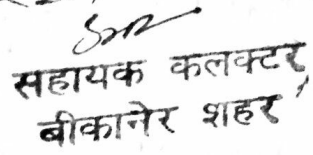 सहायक कलक्टर,
बीकानेर शहर